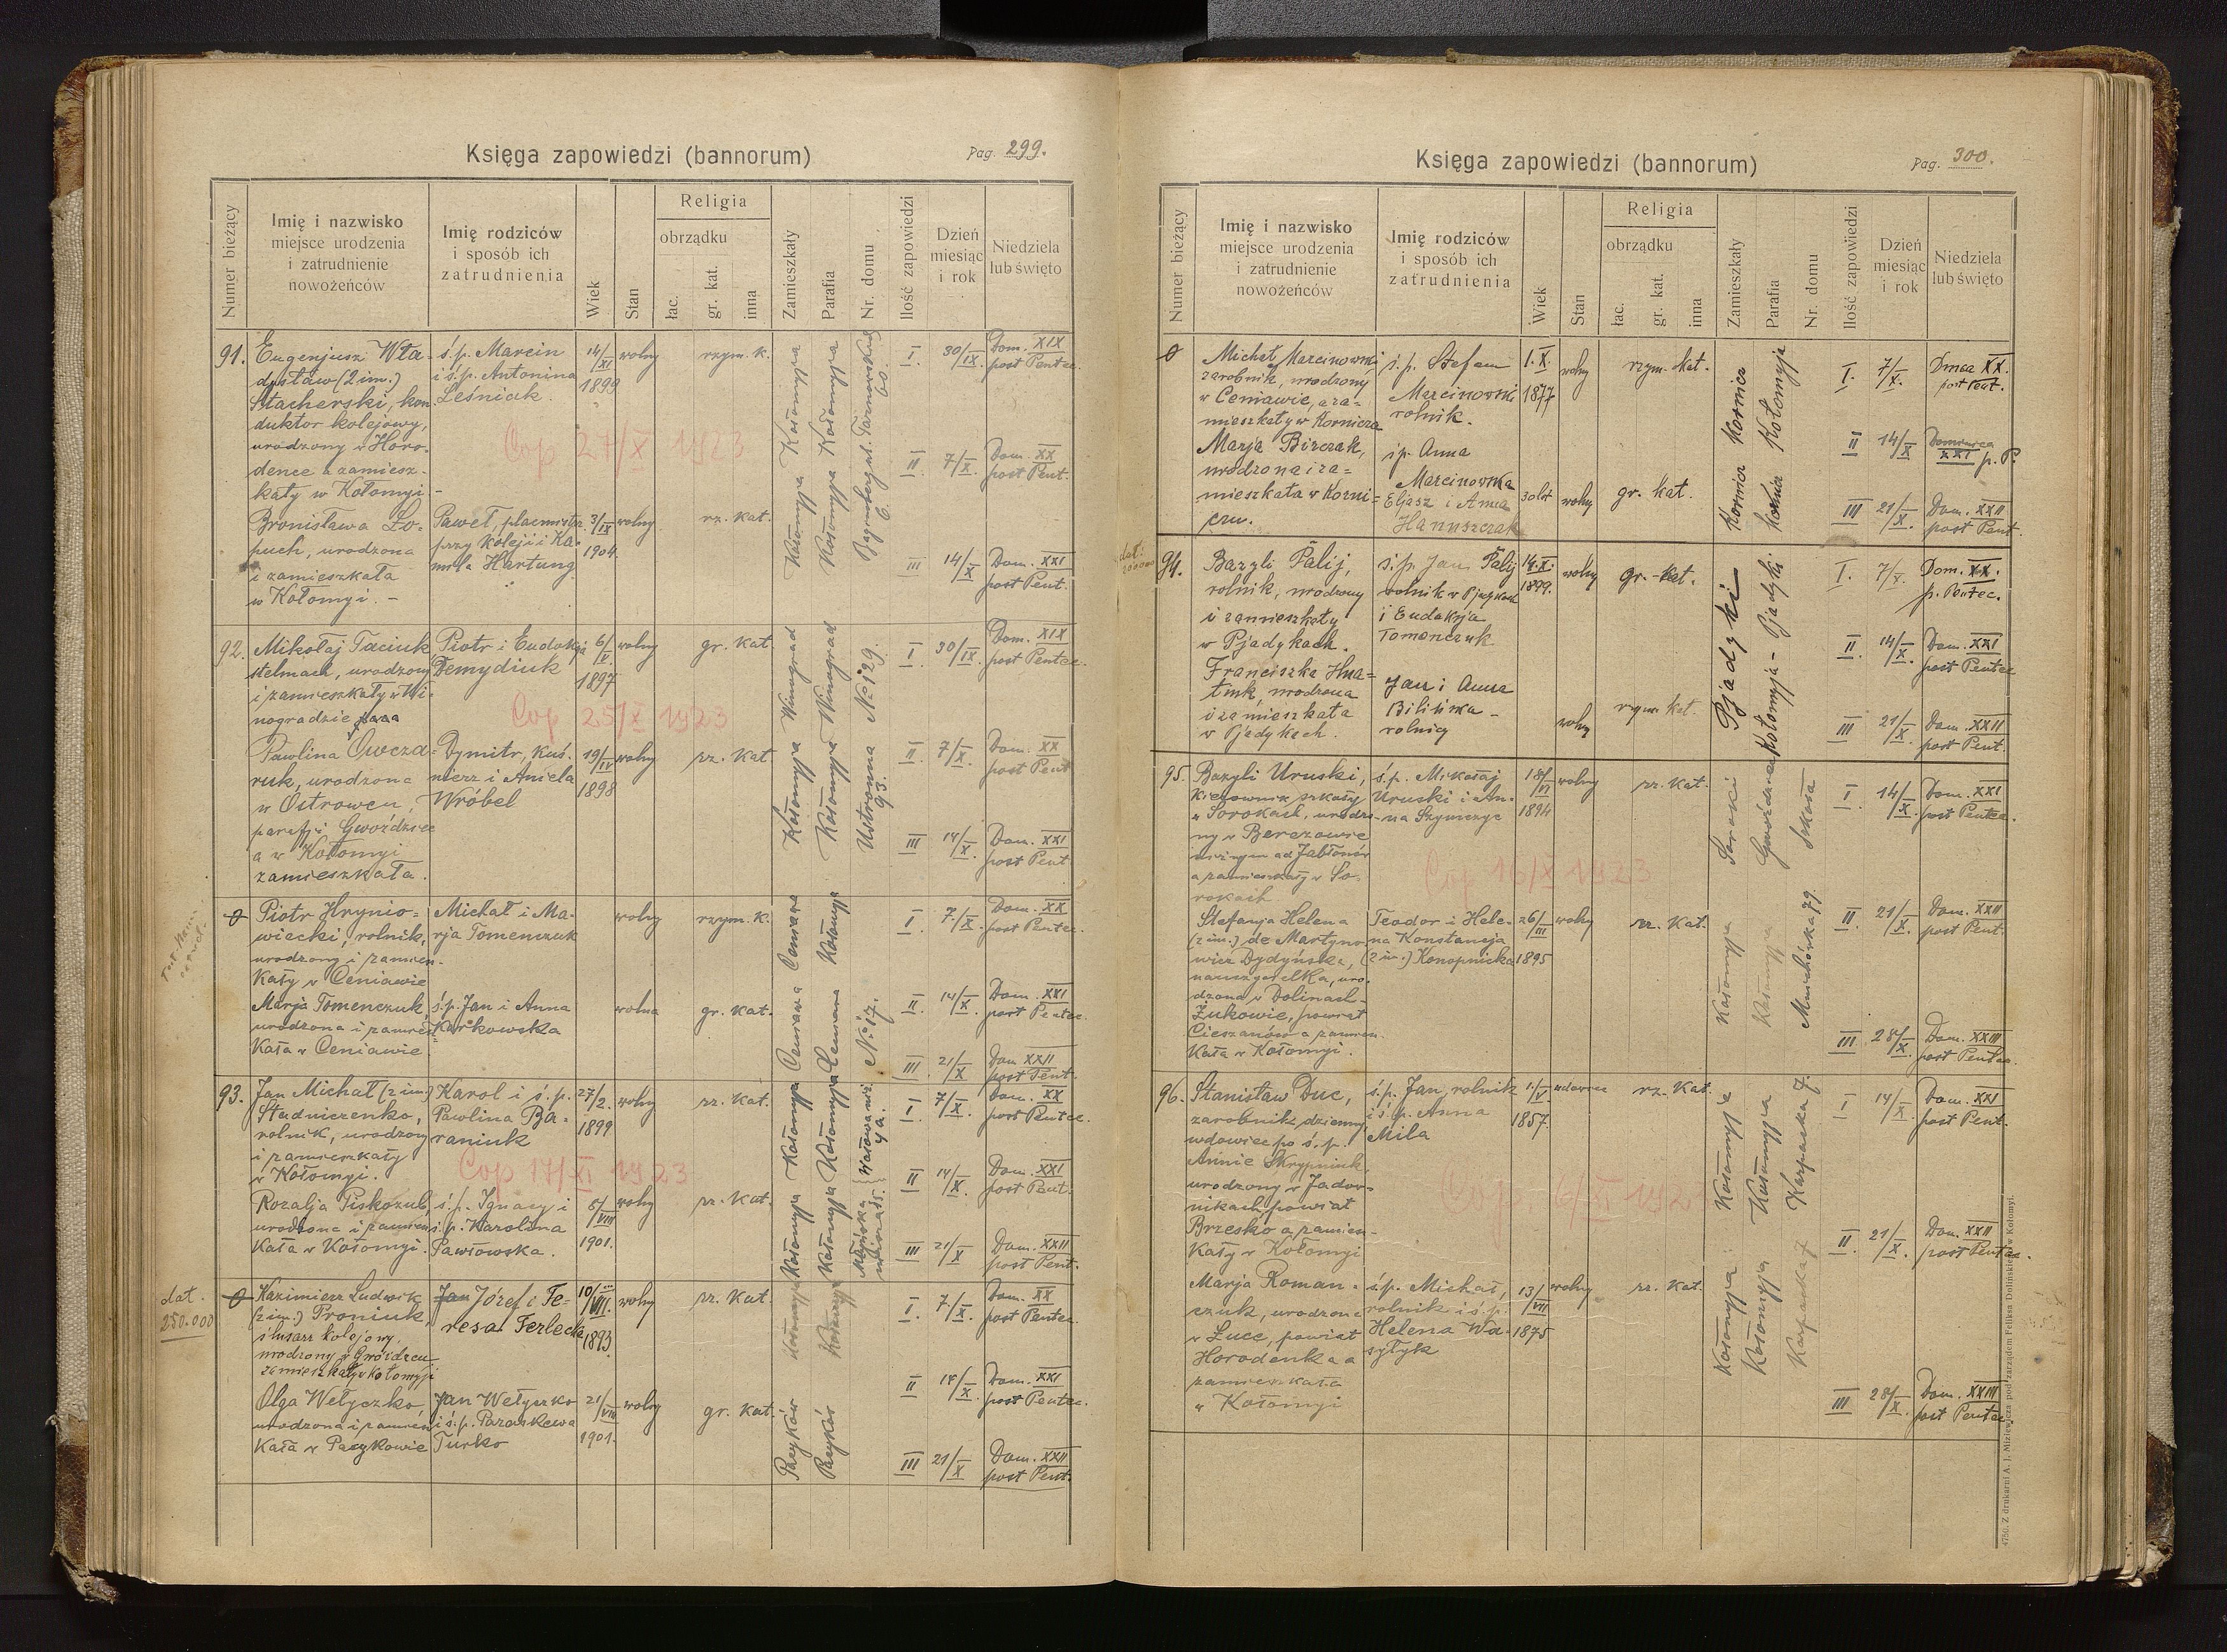 Księga zapowiedzi (bannorum)
Pag. 299.
Numer bieżący
Imię i nazwisko
miejsce urodzenia
i zatrudnienie
nowożeńców
Imię rodziców
i sposób ich
zatrudnienia
Wiek
Stan
Religia
obrządku
łac.
gr. kat.
inna
Zamieszkały
Parafia
Nr. domu
Ilość zapowiedzi
Dzień
miesiąc
i rok
Niedziela
lub święto
91.
Eugenjusz Wła-
dysław (2 im.)
Stacherski, kon-
duktor kolejowy,
urodzony w Horo-
dence a zamiesz-
kały w Kołomyi -
ś.p. Marcin
i ś.p. Antonina
Leśniak.
14/XI
1899
wolny
rzym. k.
Kołomyja
Kołomyja
Cop 27/X 1923
Bronisława Ło-
puch, urodzona
i zamieszkała
w Kołomyi. -
Paweł, placmistrz
przy kolei i Ka-
mila Hartung
3/IX
1904.
wolny
rz. kat.
Kołomyja
Kołomyja
I. 30/IX. Dom. XIX
post Pentec.
II 7/X. Dom. XX
post Pent.
III 14/X Dom. XXI
post Pent.
92.
Mikołaj Taciuk
stelmach, urodzony
i zamieszkały w Wi-
nogradzie
Piotr i Eudokja
Demydiuk
6/V.
1897
wolny
gr. kat.
Winograd
Winograd
№ 129.
Cop 25/X 1923
Pawlina Owcza-
ruk, urodzona
w Ostrowcu,
parafji Gwoździec
a w Kołomyi
zamieszkała.
Dymitr, kuś-
nierz i Aniela
Wróbel
19/IV
1898
wolny
rz. kat
Kołomyja
Kołomyja
Ustronna
93.
I 30/IX. Dom. XIX
post Pentec.
II 7/X. Dom. XX
post Pent
III 14/X. Dom. XXI
post Pent
Piotr Hrynio-
wiecki, rolnik,
urodzony i zamiesz-
kały w Ceniawie
Michał i Ma-
rja Tomenczuk
wolny
rzym. k.
Ceniawa
Kołomyja
Marja Tomenczuk
urodzona i zamiesz-
kała w Ceniawie.
ś.p. Jan i Anna
Karkowska
wolna
gr. kat.
Ceniawa
Ceniawa
№ 17.
I 7./X. Dom. XX
post Pentec.
II 14/X. Dom. XXI
post Pentec.
III 21/X Dom XXII
post Pent.
93.
Jan Michał (2 im.)
Studnicenko,
rolnik, urodzony
i zamieszkały
w Kołomyi.
Karol i ś.p.
Pawlina Ba-
raniuk
27/2.
1899
wolny
rz. kat.
Kołomyja
Kołomyja
4a.
Cop 17/XI 1923
Rozalja Piskozub,
urodzona i zamiesz-
kała w Kołomyi.
ś.p. Ignacy i
ś.p. Karolina
Pawłowska.
5/VIII
1901.
wolny
rz. kat.
Kołomyja
Kołomyja
I 7/X. Dom. XX
post Pentec.
II 14/X. Dom. XXI
post Pent.
III 21/X Dom. XXII
post Pent.
dat.
250.000
Kazimierz Ludwik
(2 im.) Proniuk,
ślusarz kolejowy,
urodzony w Gwoźdzcu
zamieszkały w Kołomyji
Jan Józef i Te-
resa Terlecka
10/VII.
1893.
wolny
rz. kat.
Kołomyja
Kołomyja
Olga Wełyczko,
urodzona i zamiesz-
kała w Pacykowie
Jan Wełyczko
i ś.p. Paraskewa
Turko
21/VIII
1901.
wolny
gr. kat.
Pacyków
Pacyków
I. 7./X. Dom. XX
post Pentec.
II 14/X. Dom. XXI
post Pentec.
III 21/X Dom. XXII
post Pent.
Księga zapowiedzi (bannorum)
Pag. 300.
Numer bieżący
Imię i nazwisko
miejsce urodzenia
i zatrudnienie
nowożeńców
Imię rodziców
i sposób ich
zatrudnienia
Wiek
Stan
Religia
obrządku
łac.
gr. kat.
inna
Zamieszkały
Parafia
Nr. domu
Ilość zapowiedzi
Dzień
miesiąc
i rok
Niedziela
lub święto
Michał Marcinowski,
zarobnik, urodzony
w Ceniawie, a za-
mieszkały w Korniczu
ś.p. Stefan
Marcinowski
rolnik.
1. X.
1877
wolny
rzym. kat.
Kornicz
Kołomyja
Marja Birczak,
urodzona i za-
mieszkała w Korni-
czu.
i p. Anna
Marcinowska
Eljasz i Anna
Hanuszczak
30 lat
wolny
gr. kat.
Kornicz
Kornicz
I. 7/X. Dmca XX.
post Pent.
II 14/X Dominica
XXI p. P.
III 21/X. Dom. XXII
post Pent.
94.
Bazyli Palij,
rolnik, urodzony
i zamieszkały
w Pjadykach.
ś.p. Jan Palij
rolnik w Pjadykach
i Eudokja
Tomenczuk
14. X.
1899.
wolny
gr.-kat.
Pjadyki
Pjadyki.
Franciszka Hna-
tiuk, urodzona
i zamieszkała
w Pjadykach.
Jan i Anna
Bilińska -
rolnicy
wolny
rzym kat.
Kołomyja -
I. 7/X. Dom. XX.
p. Pentec.
II 14/X. Dom. XXI
post Pentec
III 21/X. Dom. XXII
post Pent.
95.
Bazyli Uruski,
kierownik szkoły
w Sorokach, urodzo-
ny w Berezowie
niżnym ad Jabłonów
a zamieszkały w So-
rokach
ś.p. Mikołaj
Uruski i An-
na Szymczyc
18/VI
1894
wolny
rz. kat.
Soroki
Gwoździec
szkoła
Cop 16/X 1923
Stefanja Helena
(2 im.) de Martyno-
wicz Dydyńska,
nauczycielka, uro-
dzona w Dolinach-
Żukowie, powiat
Cieszanów a zamiesz-
kała w Kołomyi.
Teodor i Hele-
na Konstancja
(2 im.) Konopnicka
26/III
1895
wolny
rz. kat.
Kołomyja
Kołomyja
Mnichówka 79.
I 14/X. Dom. XXI
post Pentec.
II 21/X. Dom. XXII
post Pent.
III 28/X. Dom. XXIII
post Pentec.
96.
Stanisław Duc,
zarobnik dzienny
wdowiec po ś.p.
Annie Skrypniuk,
urodzony w Jadow-
nikach, powiat
Brzesko a zamiesz-
kały w Kołomyi
ś.p. Jan, rolnik
i ś.p. Anna
Mila
1./V
1857.
wdowiec
rz. kat.
Kołomyja
Kołomyja
Karpacka 7.
Cop 6/XI 192
Marja Roman-
czuk, urodzona
w Łuce, powiat
Horodenka a
zamieszkała
w Kołomyi
ś.p. Michał,
rolnik i ś.p.
Helena Wa-
sytyk
13/VII
1875
wolny
rz. kat.
Kołomyja
Kołomyja
Karpacka 7
I 14/X. Dom. XXI
post Pent.
II 21/X. Dom. XXII
post Pentec.
III 28/X. Dom. XXIII
post Pentec.